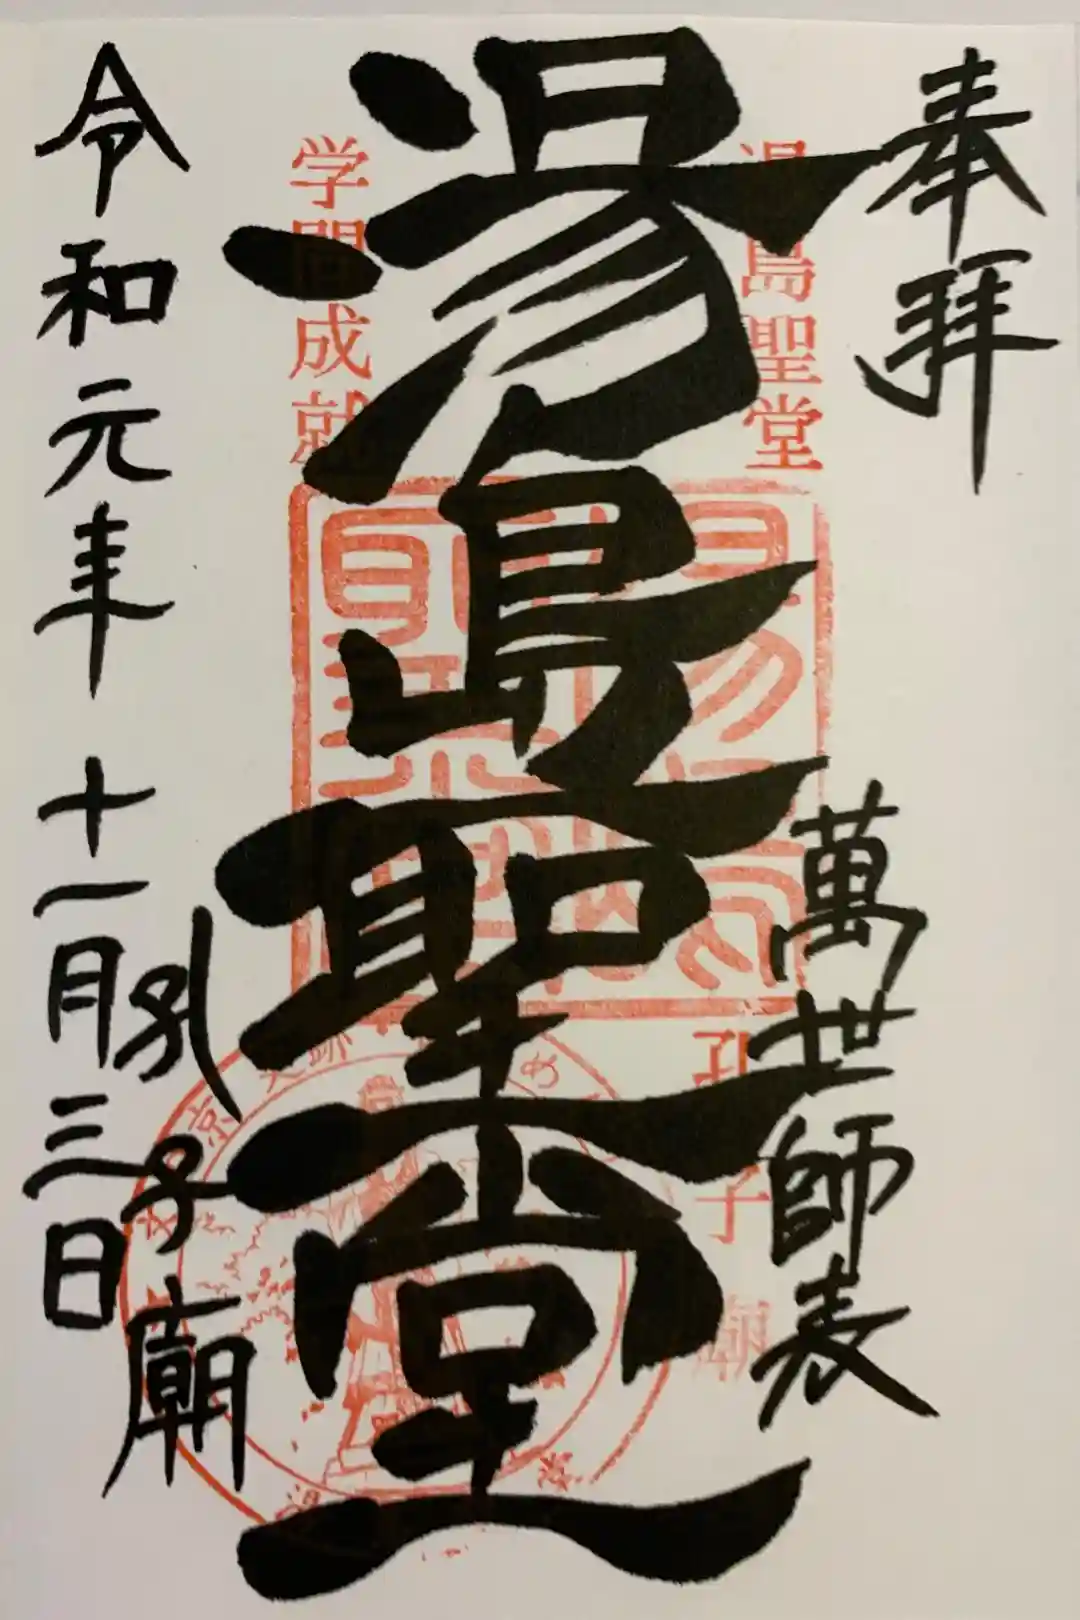 奉拝
萬世師表
湯島聖堂
孔子廟
湯島聖堂
学問成就
孔子廟
令和元年十一月三日